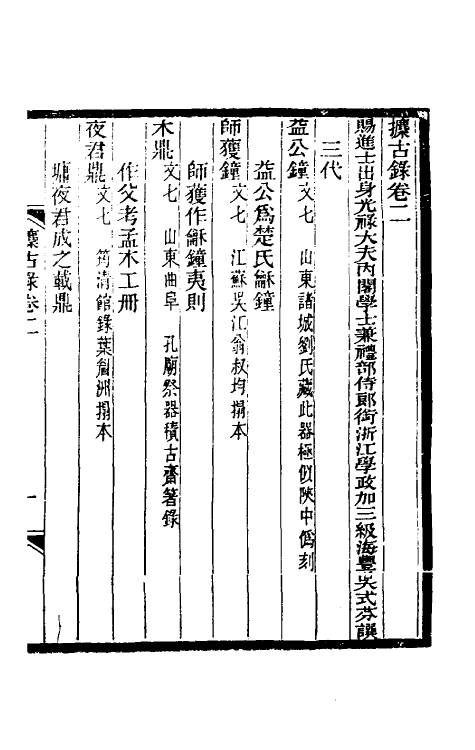 攈古錄卷二
賜進士出身光祿大夫內閣學士兼禮部侍郎銜浙江學政加三級海豐吳式芬譔
三代
益公鐘文七　山東諸城劉氏藏此器極似陝中僞刻
益公爲楚氏龢鐘
師𫉬鐘文七　江蘇吳江翁叔均搨本
師𫉬作龢鐘夷則
木鼎文七　山東曲阜　孔廟祭器積古齋箸錄
作父考孟木工冊
夜君鼎文七　筠清館錄葉匋洲搨本
㙛夜君成之載鼎
攈古錄卷二
一